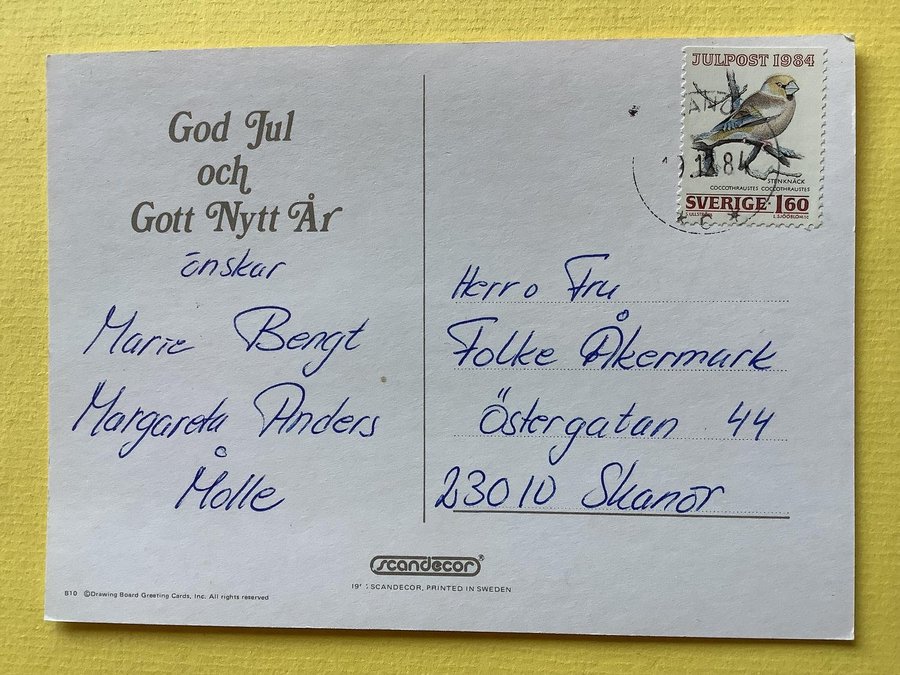 God Jul
och
Gott Nytt År
önskar
Marie Bengt
Margareta Anders
Målle
JULPOST 1984
STENKNÄCK
COCCOTHRAUSTES COCCOTHRAUSTES
SVERIGE 1.60
S ULLSTRÖM L. SJÖÖBLOM SC
84
C
Herr o Fru
Folke Åkermark
Östergatan 44
23010 Skanör
scandecor®
SCANDECOR, PRINTED IN SWEDEN
B10 ©Drawing Board Greeting Cards, Inc. All rights reserved